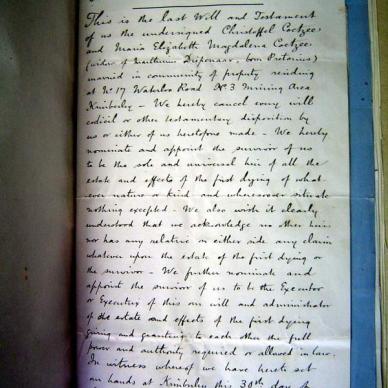 This is the last Will and Testament
of us the undersigned Christoffel Coetzee
and Maria Elizabeth Magdalena Coetzee
(widow of Mattheus Oppenaar, born Pretorius)
married in community of property residing
at No 17 Waterloo Road No 3 Mining Area
Kimberley - We hereby cancel every will
codicil or other testamentary disposition by
us or either of us heretofore made - We hereby
nominate and appoint the survivor of us
to be the sole and universal heir of all the
estate and effects of the first dying of what-
ever nature or kind and wheresoever situate
nothing excepted - We also wish it clearly
understood that we acknowledge no other heir
nor has any relative on either side any claim
whatever upon the estate of the first dying or
the survivor - We further nominate and
appoint the survivor of us to be the Executor
or Executrix of this our will and administrator
of the estate and effects of the first dying
giving and granting to each other the full
power and authority required or allowed in law.
In witness whereof we have hereto set
our hands at Kimberley this 30th day